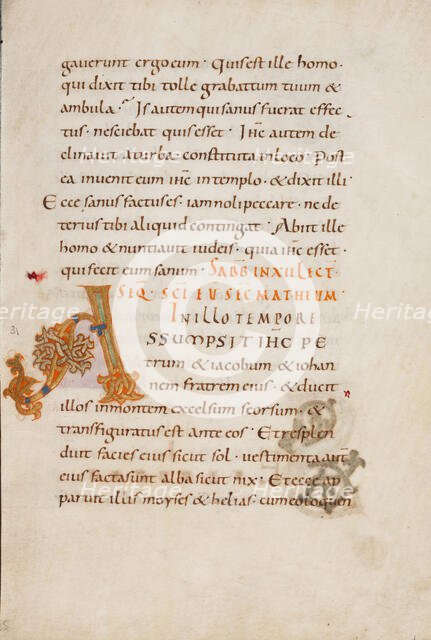 gaverunt ergo eum · Quis est ille homo ·
qui dixit tibi tolle grabattum tuum &
ambula · Is autem qui sanus fuerat effec
tus · nesciebat quis esset · Ihc autem de
clinavit a turba constituta in loco · Post
ea invenit eum ihc in templo · & dixit illi
Ecce sanus factus es · iam noli peccare · ne de
terius tibi aliquid contingat · Abiit ille
homo & nuntiavit iudeis · quia ihc esset ·
qui fecit eum sanum · SABB IN XII LECT ·
SEQ SCI EV SEC MATHEUM
IN ILLO TEMPORE
ASSUMPSIT IHC PE
trum & iacobum & iohan
nem fratrem eius · & ducit
illos in montem excelsum seorsum · &
transfiguratus est ante eos · Et resplen
duit facies eius sicut sol · vestimenta aut
eius facta sunt alba sicut nix · Et ecce ap
paruit illis moyses & helias · cum eo loquen
31
Heritage
Heritage
Heritage
Heritage
Heritage
Heritage